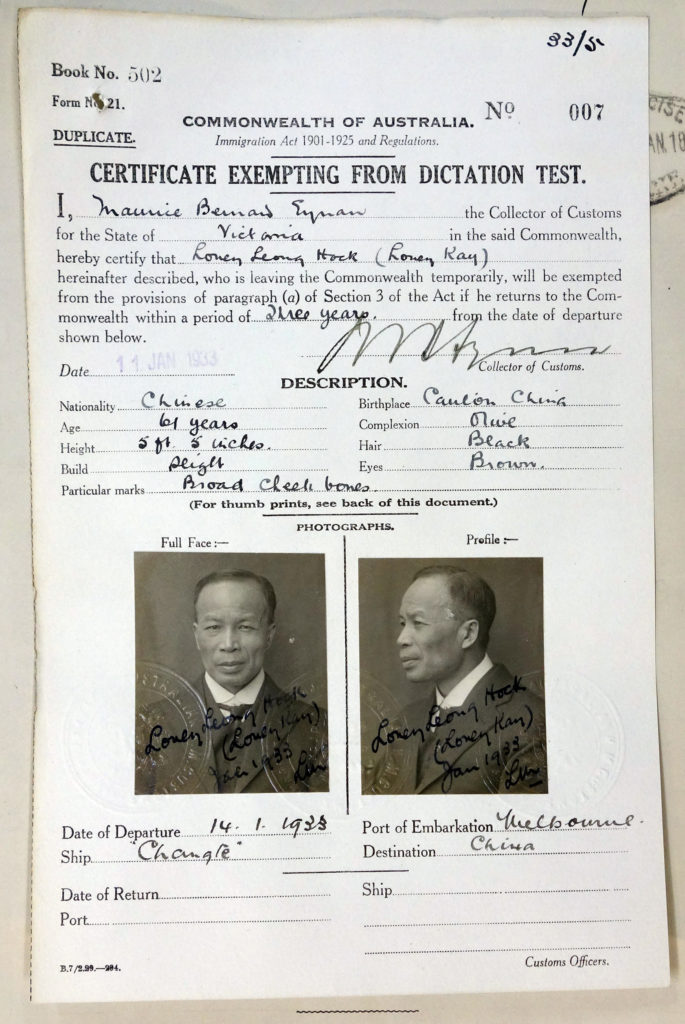 33/5
Book No. 502
Form No 21.
DUPLICATE.
COMMONWEALTH OF AUSTRALIA.
No 007
Immigration Act 1901-1925 and Regulations.
CERTIFICATE EXEMPTING FROM DICTATION TEST.
I, Maurice Bernard Eynan the Collector of Customs
for the State of Victoria in the said Commonwealth,
hereby certify that Loney Leong Hock (Loney Kay)
hereinafter described, who is leaving the Commonwealth temporarily, will be exempted
from the provisions of paragraph (a) of Section 3 of the Act if he returns to the Com-
monwealth within a period of Three years. from the date of departure
shown below.
Collector of Customs.
Date 11 JAN 1933
DESCRIPTION.
Nationality Chinese
Birthplace Canton China
Age 61 years
Complexion Olive
Height 5 ft 5 inches.
Hair Black
Build Slight
Eyes Brown.
Particular marks Broad Cheek bones.
(For thumb prints, see back of this document.)
PHOTOGRAPHS.
Full Face:—
Profile:—
Loney Leong Hock
(Loney Kay)
Jan 1933
Loney Leong Hock
(Loney Kay)
Jan 1933
Date of Departure 14.1.1933
Port of Embarkation Melbourne.
Ship "Changte"
Destination China
Date of Return
Ship
Port
B.7/2.29.—294.
Customs Officers.